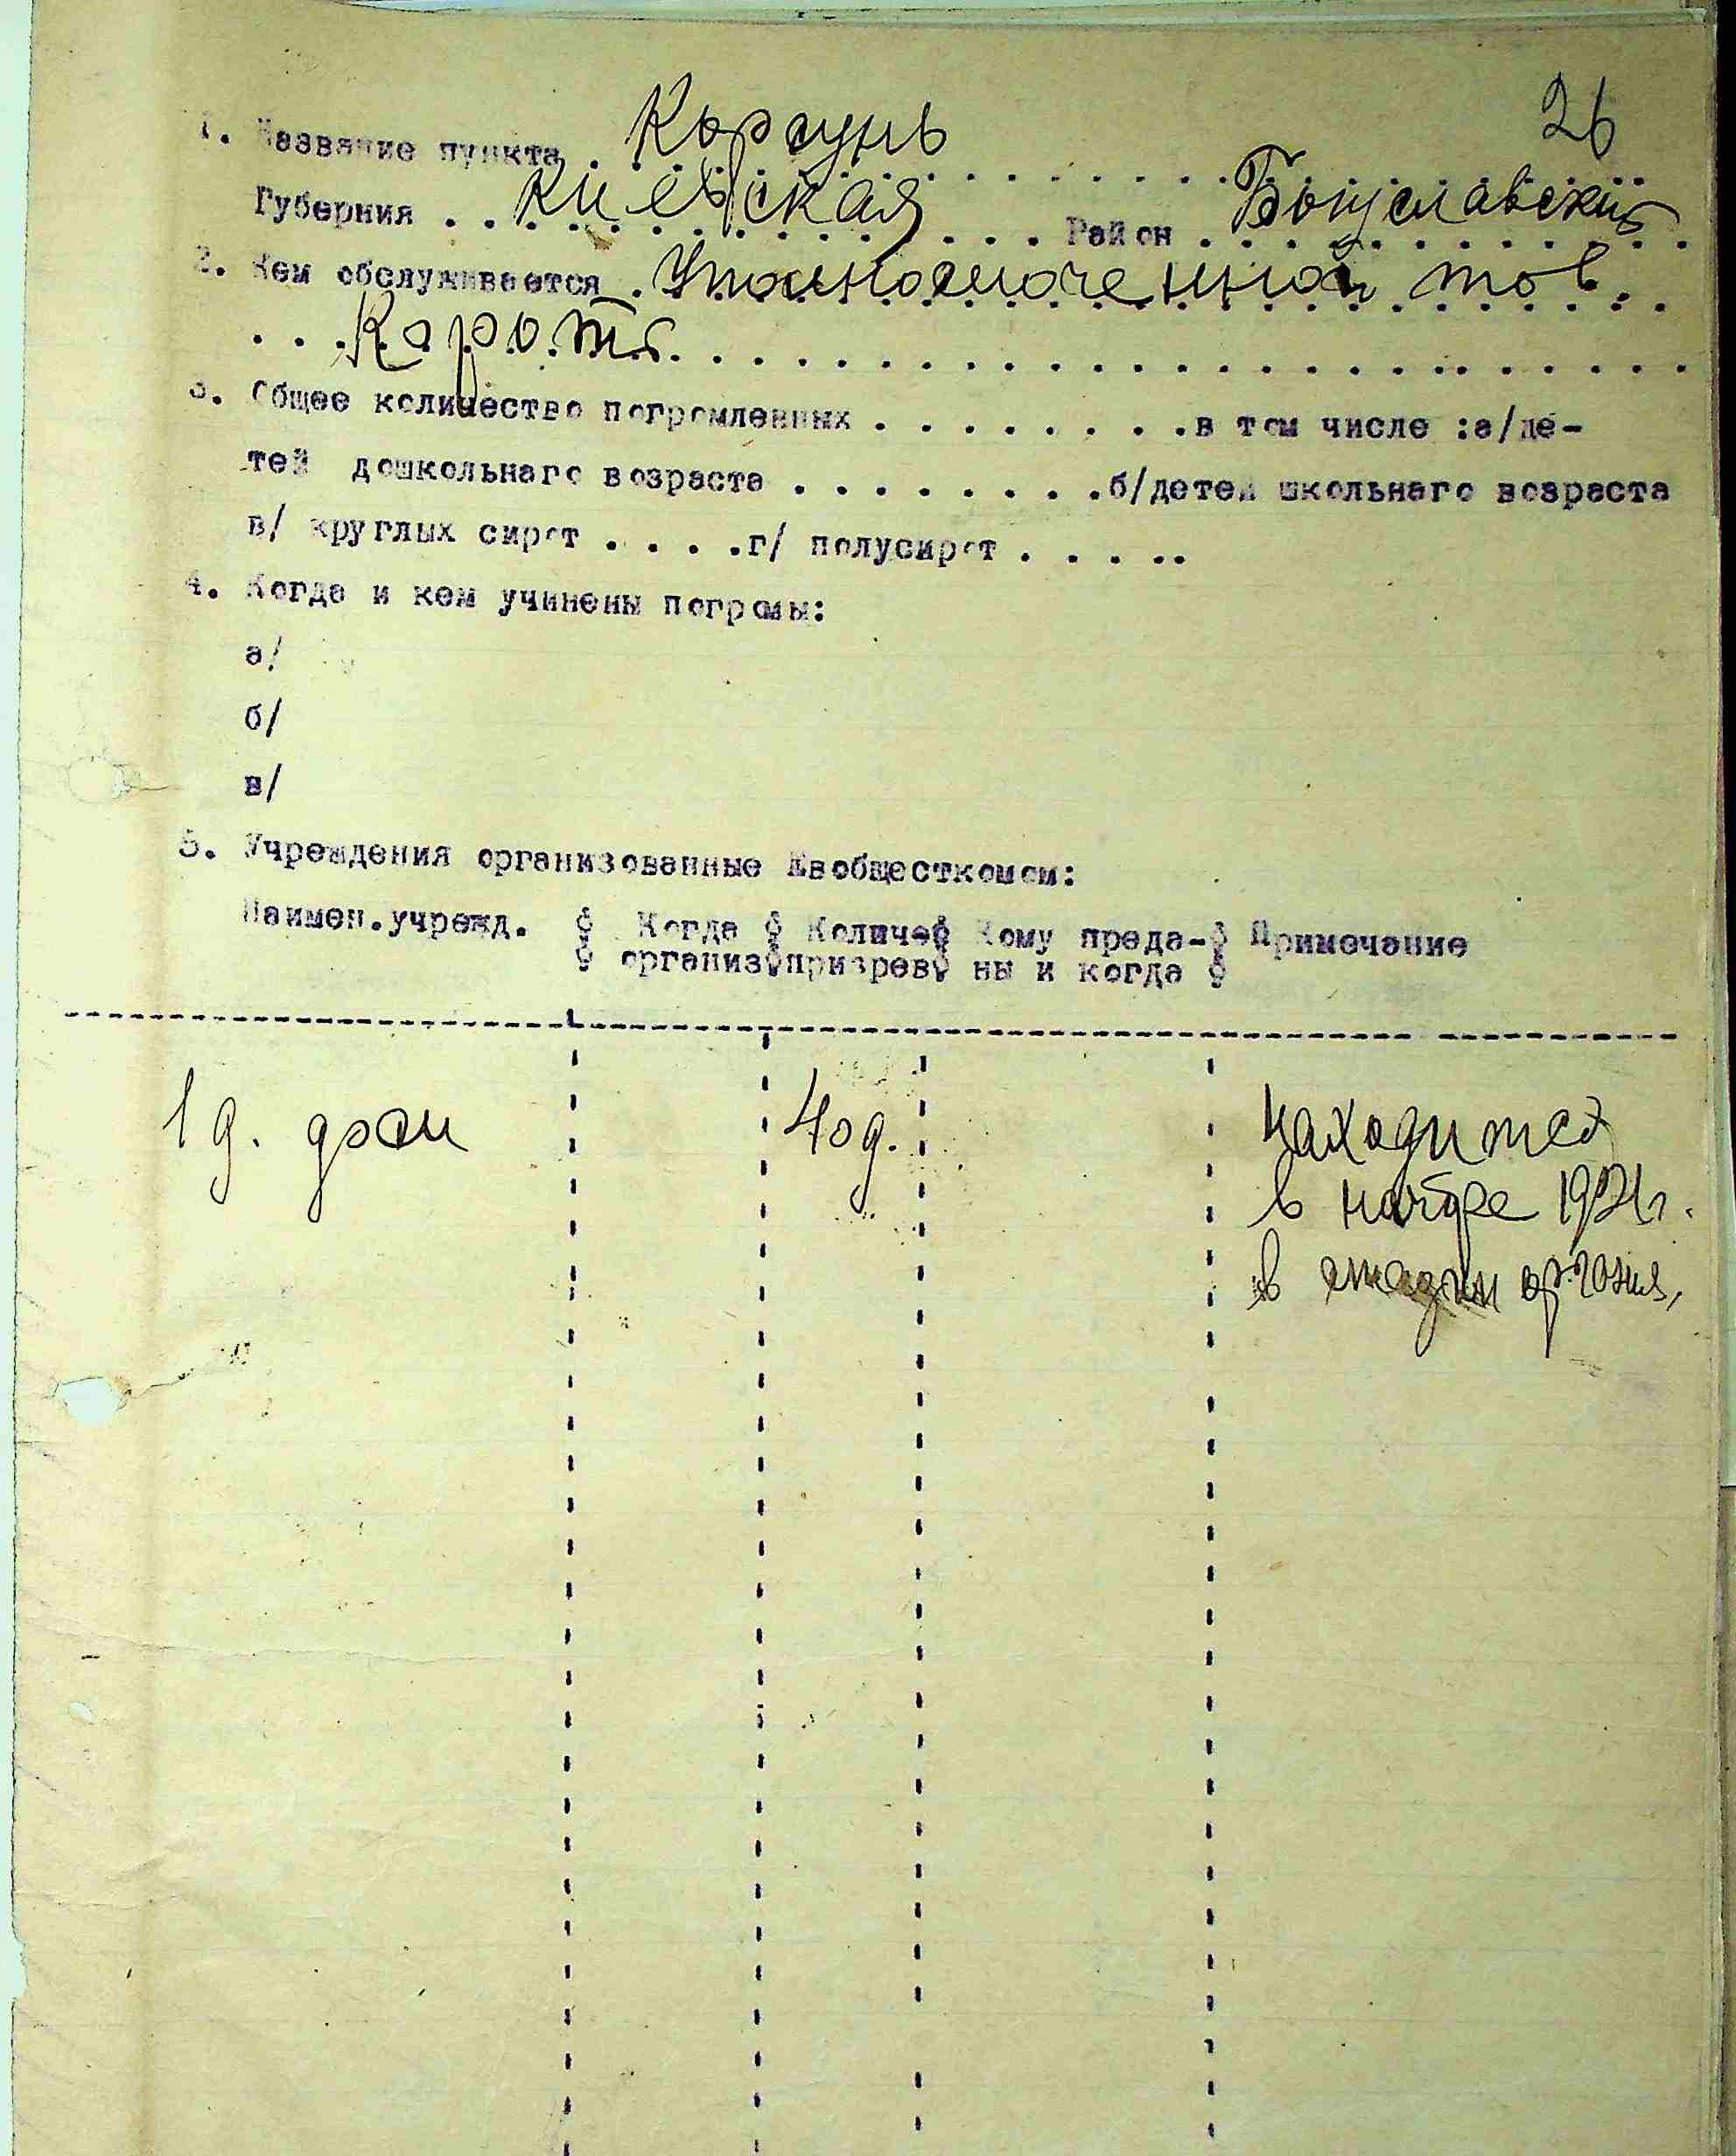 26
1. Название пункта . Корсунь
Губерния . . Киевская . . . Район . Богуславский
2. Кем обслуживается . Уполномоченной тов.
. . . Коротн. . . . . . . . . . . . . . . . . . . . . . . .
3. Общее количество погромленных . . . . . . . . .в том числе :а/де-
тей дошкольнаго возраста . . . . . . . . .б/детей школьнаго возраста
в/ круглых сирот . . . . .г/ полусирот . . . . ..
4. Когда и кем учинены погромы:
а/
б/
в/
5. Учреждения организованные Евобщесткомом:
Наимен.учрежд. Когда Количе Кому преда- Примечание
организ призрев ны и когда
1 д. дом 40 д. находится
в ноябре 1921 г.
в стадии